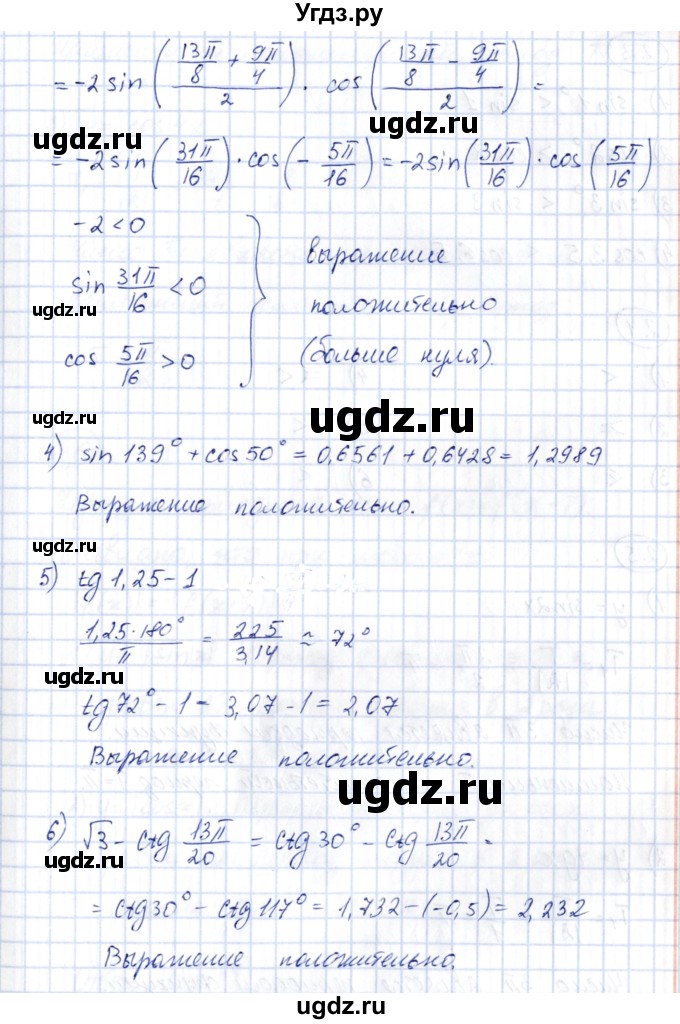 Угдз.ру
= -2 sin ( (13π/8 + 9π/4) / 2 ) · cos ( (13π/8 - 9π/4) / 2 ) =
ugdz.ru
ugdz.ru
= -2 sin ( 31π/16 ) · cos ( - 5π/16 ) = -2 sin ( 31π/16 ) · cos ( 5π/16 )
-2 < 0
sin 31π/16 < 0
cos 5π/16 > 0
выражение
положительно
(больше нуля).
ugdz.ru
ugdz.ru
ugdz.ru
4) sin 139° + cos 50° = 0,6561 + 0,6428 = 1,2989
Выражение положительно.
ugdz.ru
5) tg 1,25 - 1
1,25·180°/π = 225/3,14 ≈ 72°
ugdz.ru
tg 72° - 1 = 3,07 - 1 = 2,07
Выражение положительно.
ugdz.ru
6) √3 - ctg 13π/20 = ctg 30° - ctg 13π/20 =
ugdz.ru
= ctg 30° - ctg 117° = 1,732 - (-0,5) = 2,232
Выражение положительно.
ugdz.ru